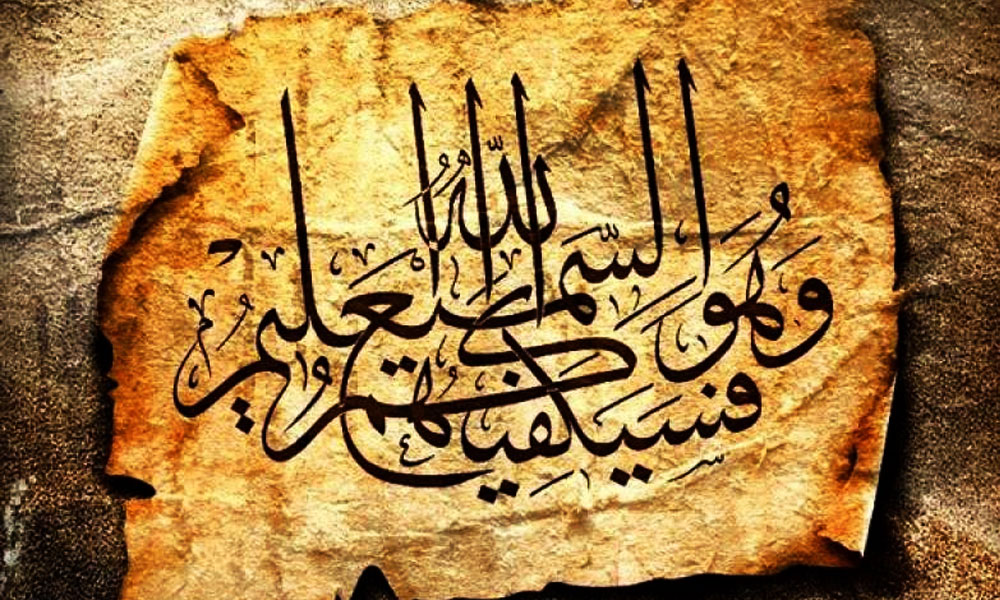 فَسَيَكْفِيكَهُمُ اللّٰهُ وَهُوَ السَّمِيعُ الْعَلِيمُ